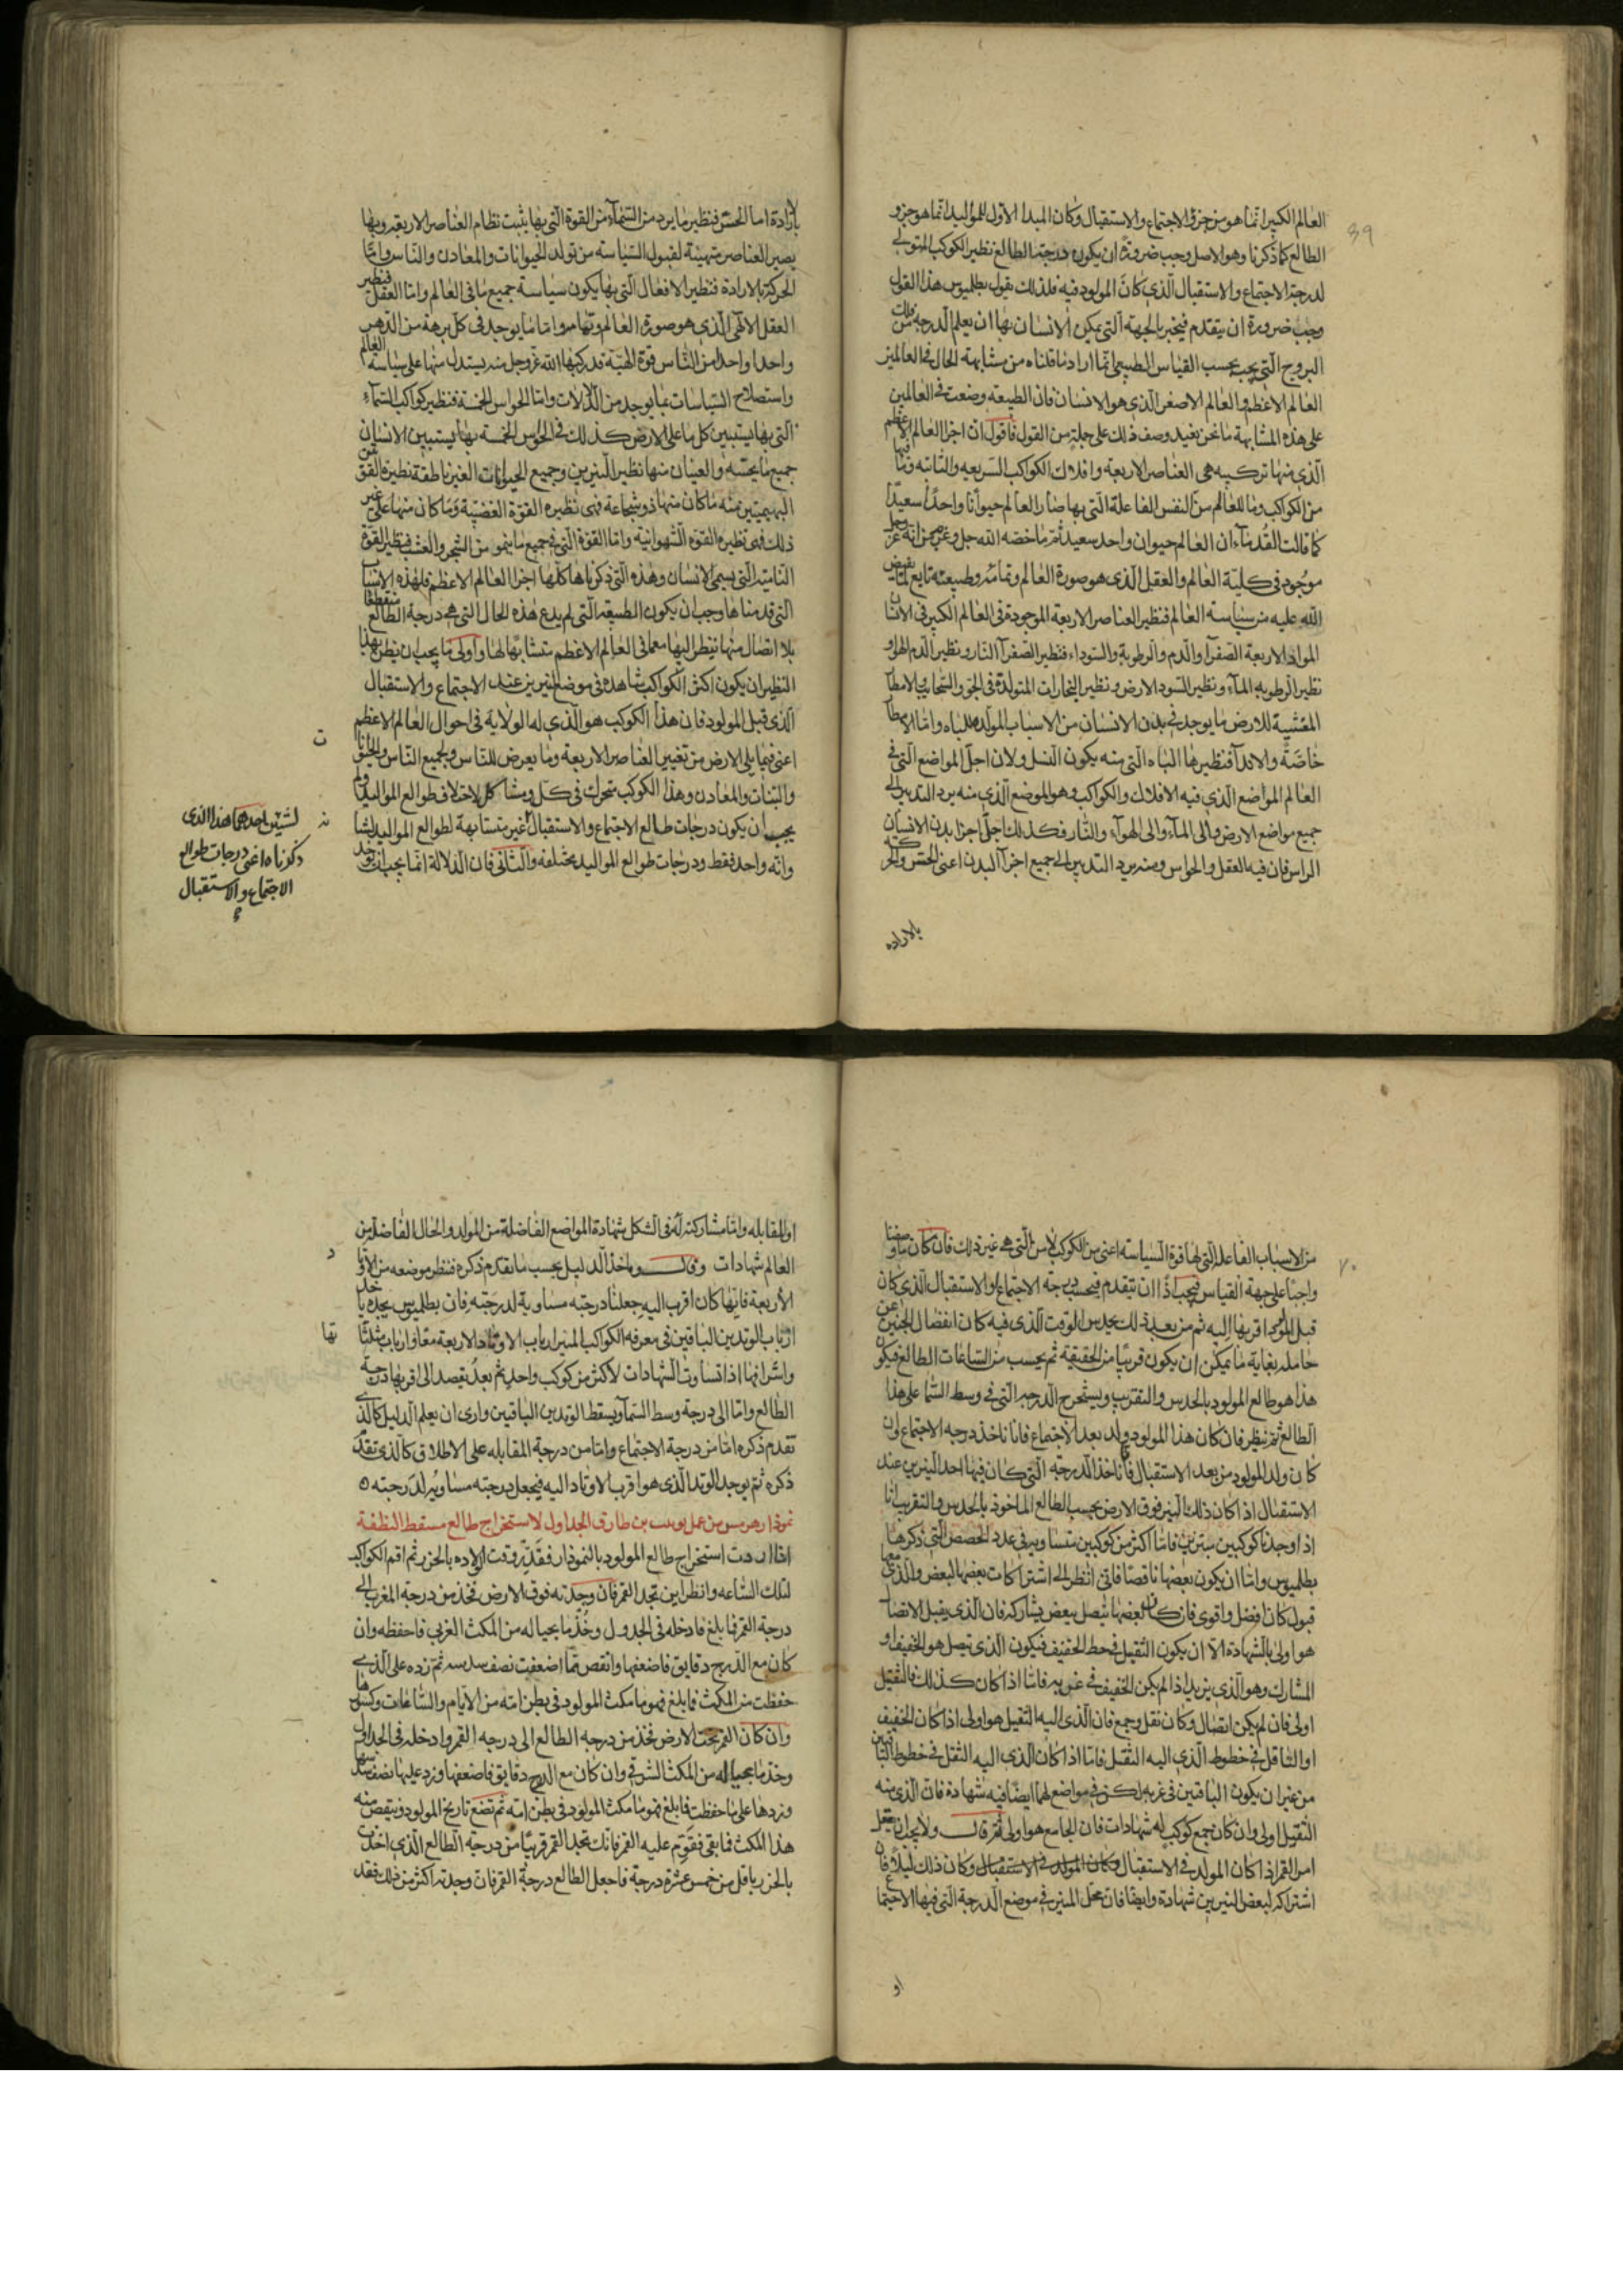 39
العالم الكبير انما هو من جزؤ الاجتماع والاستقبال وكان المبدا الاول للمواليد انما هو جزو
الطالع كما ذكرنا وهو الاصل وجب ضرورة ان يكون درجة الطالع نظير الكوكب المتولي
لدرجة الاجتماع والاستقبال الذي كان المولود فيه فلذلك يقول بطلميوس هذا القول
وجب ضرورة ان يتقدم فيخبر بالجهة التي يمكن الانسان بها ان يعلم الدرجة من فلك
البروج التي يجب بحسب القياس الطبيعي انما اراد ما قلناه من مشابهة الحال في العالمين
العالم الاعظم والعالم الاصغر الذي هو الانسان فان الطبيعه وضعت في العالمين
على هذه المشابهة ما نحن نعيد وصف ذلك على جملة من القول فاقول ان اجزا العالم الاعظم
الذي منها تركيبه هي العناصر الاربعة وافلاك الكواكب السريعه والثابته وما فيها
من الكواكب وما للعالم من النفس الفاعلة التي بها صار العالم حيوانا واحدا سعيدا
كما قالت القدماء ان العالم حيوان واحد سعيد ثم ما خصه الله جل وعز من انه عز وجل
موجود في كلية العالم والعقل الذي هو صورة العالم وتمامه وطبيعته تابع لما يفيض
الله عليه من سياسة العالم فنظير العناصر الاربعة الموجودة في العالم الكبير في الانسان
المواد الاربعة الصفرا والدم والرطوبة والسوداء فنظير الصفرآ النار ونظير الدم الهوا و
نظير الرطوبه المآء ونظير السودا الارض ونظير البخارات المتولدة في الجو والسحاب والامطآ
المغشية للارض ما يوجد في بدن الانسان من الاسباب المولده للباه واما الامطآ
خاصة والاندآ فنظيرها الباه التي منه يكون النسل ولان اجل المواضع التي في
العالم المواضع الذي فيه الافلاك والكواكب وهو الموضع الذي منه يرد التدبير الى
جميع مواضع الارض والى المآء والى الهوآء والنار فكذلك اجل اجزا بدن الانسان
الراس فان فيه العقل والحواس ومنه يرد التدبير الى جميع اجزآ البدن اعني الحسّ والحركته
بالاراده
بالارادة اما الحسّ فنظير ما يرد من السمآء من القوة التي بها يثبت نظام العناصر الاربعة وبها
يصير العناصر متهيئة لقبول السياسة من تولد الحيوانات والمعادن والناس واما
الحركة بالارادة فنظير الافعال التي بها يكون سياسة جميع ما في العالم واما العقل فنظير
العقل الالهي الذي هو صورة العالم وتمامه واما ما يوجد في كل برهة من الدهر
واحدا واحدا من الناس قوة الهية قد ركبها الله عز وجل منه يستدل منها على سياسة العالم
واستصلاح السياسات بما يوجد من الدلالات واما الحواس الخمسة فنظير كواكب السمآء
التي بها يستبين كل ما على الارض كذلك في الحواس الخمسة بها يستبين الانسان
جميع ما يحسّه والعينان منها نظير النيرين وجميع الحيوانات الغير ناطقة نظيره القوى
البهيميتين منه ما كان منها ذو شجاعة فهى نظيره القوة الغضبية وما كان منها على غير
ذلك فهى نظيره القوه الشهوانية واما القوة التي في جميع ما ينمو من الشجر والعشب فنظير القوة
النامية التي يسمى الانسان وهذه التي ذكرناها كلها اجزا العالم الاعظم فلهذه الاسباب
التي قدمناها وجب ان يكون الطبيعة التي لم يدع هذه الحال التي هي درجة الطالع منقطعا
بلا اتصال منها ينظر اليها معما في العالم الاعظم متشابها لها واولى ما يجب ان يظن بهذا
النظير ان يكون اكثر الكواكب شاهدة في موضع النيرين عند الاجتماع والاستقبال
الذي قبل المولود فان هذا الكوكب هو الذي له الولاية في احوال العالم الاعظم
اعني فيما يلي الارض من تغيير العناصر الاربعة وما يعرض للناس ولجميع الناس والحيوانا
والنبات والمعادن وهذا الكوكب متحرك في كل وبشاكل لاختلاف طوالع المواليد ولم
يجب ان يكون درجات طالع الاجتماع والاستقبال غير متشابهة لطوالع المواليد لشا
وانه واحد فقط ودرجات طوالع المواليد مختلفه والثاني فان الدلالة انما يجب ان يوخذ
ت
لشيئين احدهما هذا الذي
ذكرناه اعني درجات طوالع
الاجتماع والاستقبال
٧٠
من الاسباب الفاعلة التي لها قوة السياسه اعني من الكواكب لا من التي هي غير ذلك فان كان ما وصفنا
واجبا على جهة القياس فيجب اذا ان يتقدم فيحسب درجة الاجتماع او الاستقبال الذي كان
قبل المولد اقربها اليه ثم من بعد ذلك يحدس الوقت الذي فيه كان انفصال الجنين عن
حامله بغاية ما يمكن ان يكون قريبا من الحقيقية ثم يحسب من الساعات الطالع فيكون
هذا هو طالع المولود بالحدس والتقريب ويستخرج الدرجه التي في وسط السما على هذا
الطالع ثم ينظر فان كان هذا المولود ولد بعد الاجتماع فانا ناخذ درجه الاجتماع وان
كان ولد المولود من بعد الاستقبال فانا ناخذ الدرجة التي كان فيها احد النيرين عند
الاستقبال اذا كان ذلك النير فوق الارض بحسب الطالع الماخوذ بالحدس والتقريب انا
اذا وجدنا كوكبين مبتزين فاما اكثر من كوكبين متساويه في عدد الحصص التي ذكرها
بطلميوس واما ان يكون بعضها ناقصا فاني انظر الى اشتراكات بعضها لبعض والذي معها
قبول كان افضل واقوى فان كان بعضها يتصل ببعض يشاركه فان الذي يقبل الاتصا
هو اولى بالشهادة الا ان يكون الثقيل في حط الخفيف فيكون الذي يتصل هو الخفيف او
المشارك وهو الذي يزيد اذا لم يكن الخفيف في غربه فاما اذا كان كذلك فالثقيل
اولى فان لم يكن اتصال وكان نقل وجمع فان الذي اليه الثقيل هو اولى اذا كان الخفيف
او الناقل في خطوط الذي اليه النقل فاما اذا كان الذي اليه النقل في خطوط الباقين
من غير ان يكون الباقين في غربه لكن في مواضع لهما ايضا فيه شهادة فان الذي منه
النقيل اولى وان كان جمع كوكب له شهادات فان الجامع هو اولى ثم قال ولا يجب ان يغفل
امر القمر اذا كان المولد في الاستقبال وكان المولد في الاستقبال وكان ذلك ليلا فان
اشتراكه لبعض النيرين شهادة وايضا فان محل المنير في موضع الدرجة التي فيها الاجتماع
او
او المقابله واما مشاركته له في الشكل شهادة المواضع الفاضلة من المولد والحال الفاضلة من
العالم شهادات وقال وناخذ الدليل بحسب ما تقدم ذكره فننظر موضعه من الاوتا
الاربعة فايها كان اقرب اليه جعلنا درجته مساوية لدرجته فان بطلميوس يجده يا خذ
ارباب الوتدين الباقين في معرفه الكواكب المنير ارباب الاوتاد الاربعة معا وارباب مثلثا
واشرافها اذا تساوت الشهادات لاكثر من كوكب واحد ثم بعد يقصد الى اقربها درجة
الطالع واما الى درجة وسط السمآ ويسقط الوتدين الباقيين وارى ان يعلم الدليل كالذي
تقدم ذكره اما من درجة الاجتماع واما من درجة المقابله على الاطلاق كالذي تقدم
ذكره ثم يوجد الوتد الذي هو اقرب الاوتاد اليه فيجعل درجته مساويه لدرجته
نموذار هرمس من عمل يعقوب بن طارق الجداول لاستخراج طالع مسقط النطفة
اذا اردت استخراج طالع المولود بالنموذار فقدر وقت الولاده بالحزر ثم اقم الكواكب
لتلك الساعه وانظر اين تجد القمر فان وجدته فوق الارض فخذ من درجة المغرب الى
درجة القمر فما بلغ فادخله في الجدول وخذ ما بحياله من المكث الغربي فاحفظه وان
كان مع الدرج دقايق فاضعفها وانقص مما اضعفت نصف سدسه ثم زده على الذي
حفظت من المكث فما بلغ فهو ما مكث المولود في بطن امه من الايام والساعات وكسورها
وان كان القمر تحت الارض فخذ من درجه الطالع الى درجه القمر وادخله في الجداول
وخذ ما بحياله من المكث الشرقي وان كان مع الدرج دقايق فاضعفها وزد عليها نصف سدسها
وزدها على ما حفظت فما بلغ فهو ما مكث المولود في بطن امه ثم تضع تاريخ المولود وينقص منه
هذا المكث فما بقي فقوم عليه القمر فانك تجد القمر قريبا من درجة الطالع الذي اخذت
بالحزر باقل من خمس عشرة درجة فاجعل الطالع درجة القمر فان وجدته اكثر من ذلك فقد
د
تها